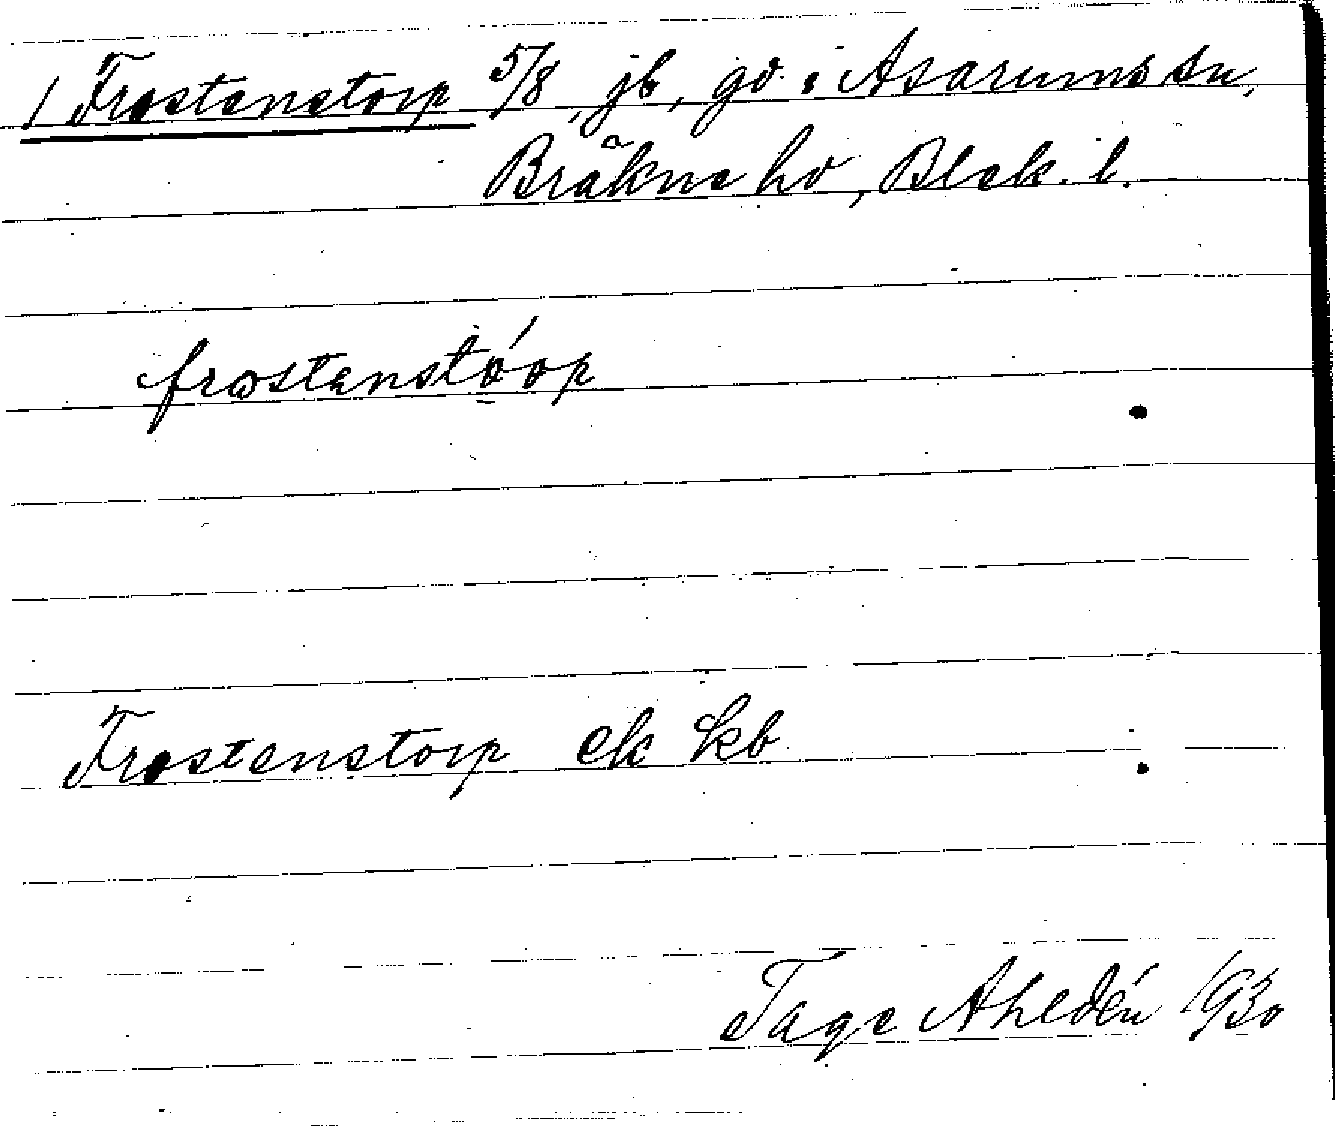 1 Frostenstorp 5/8, jb, gd i Asarums sn,
Bräkne hd, Blek. l.
frostenstóop
Frostenstorp ek kb
Tage Ahldén 1930